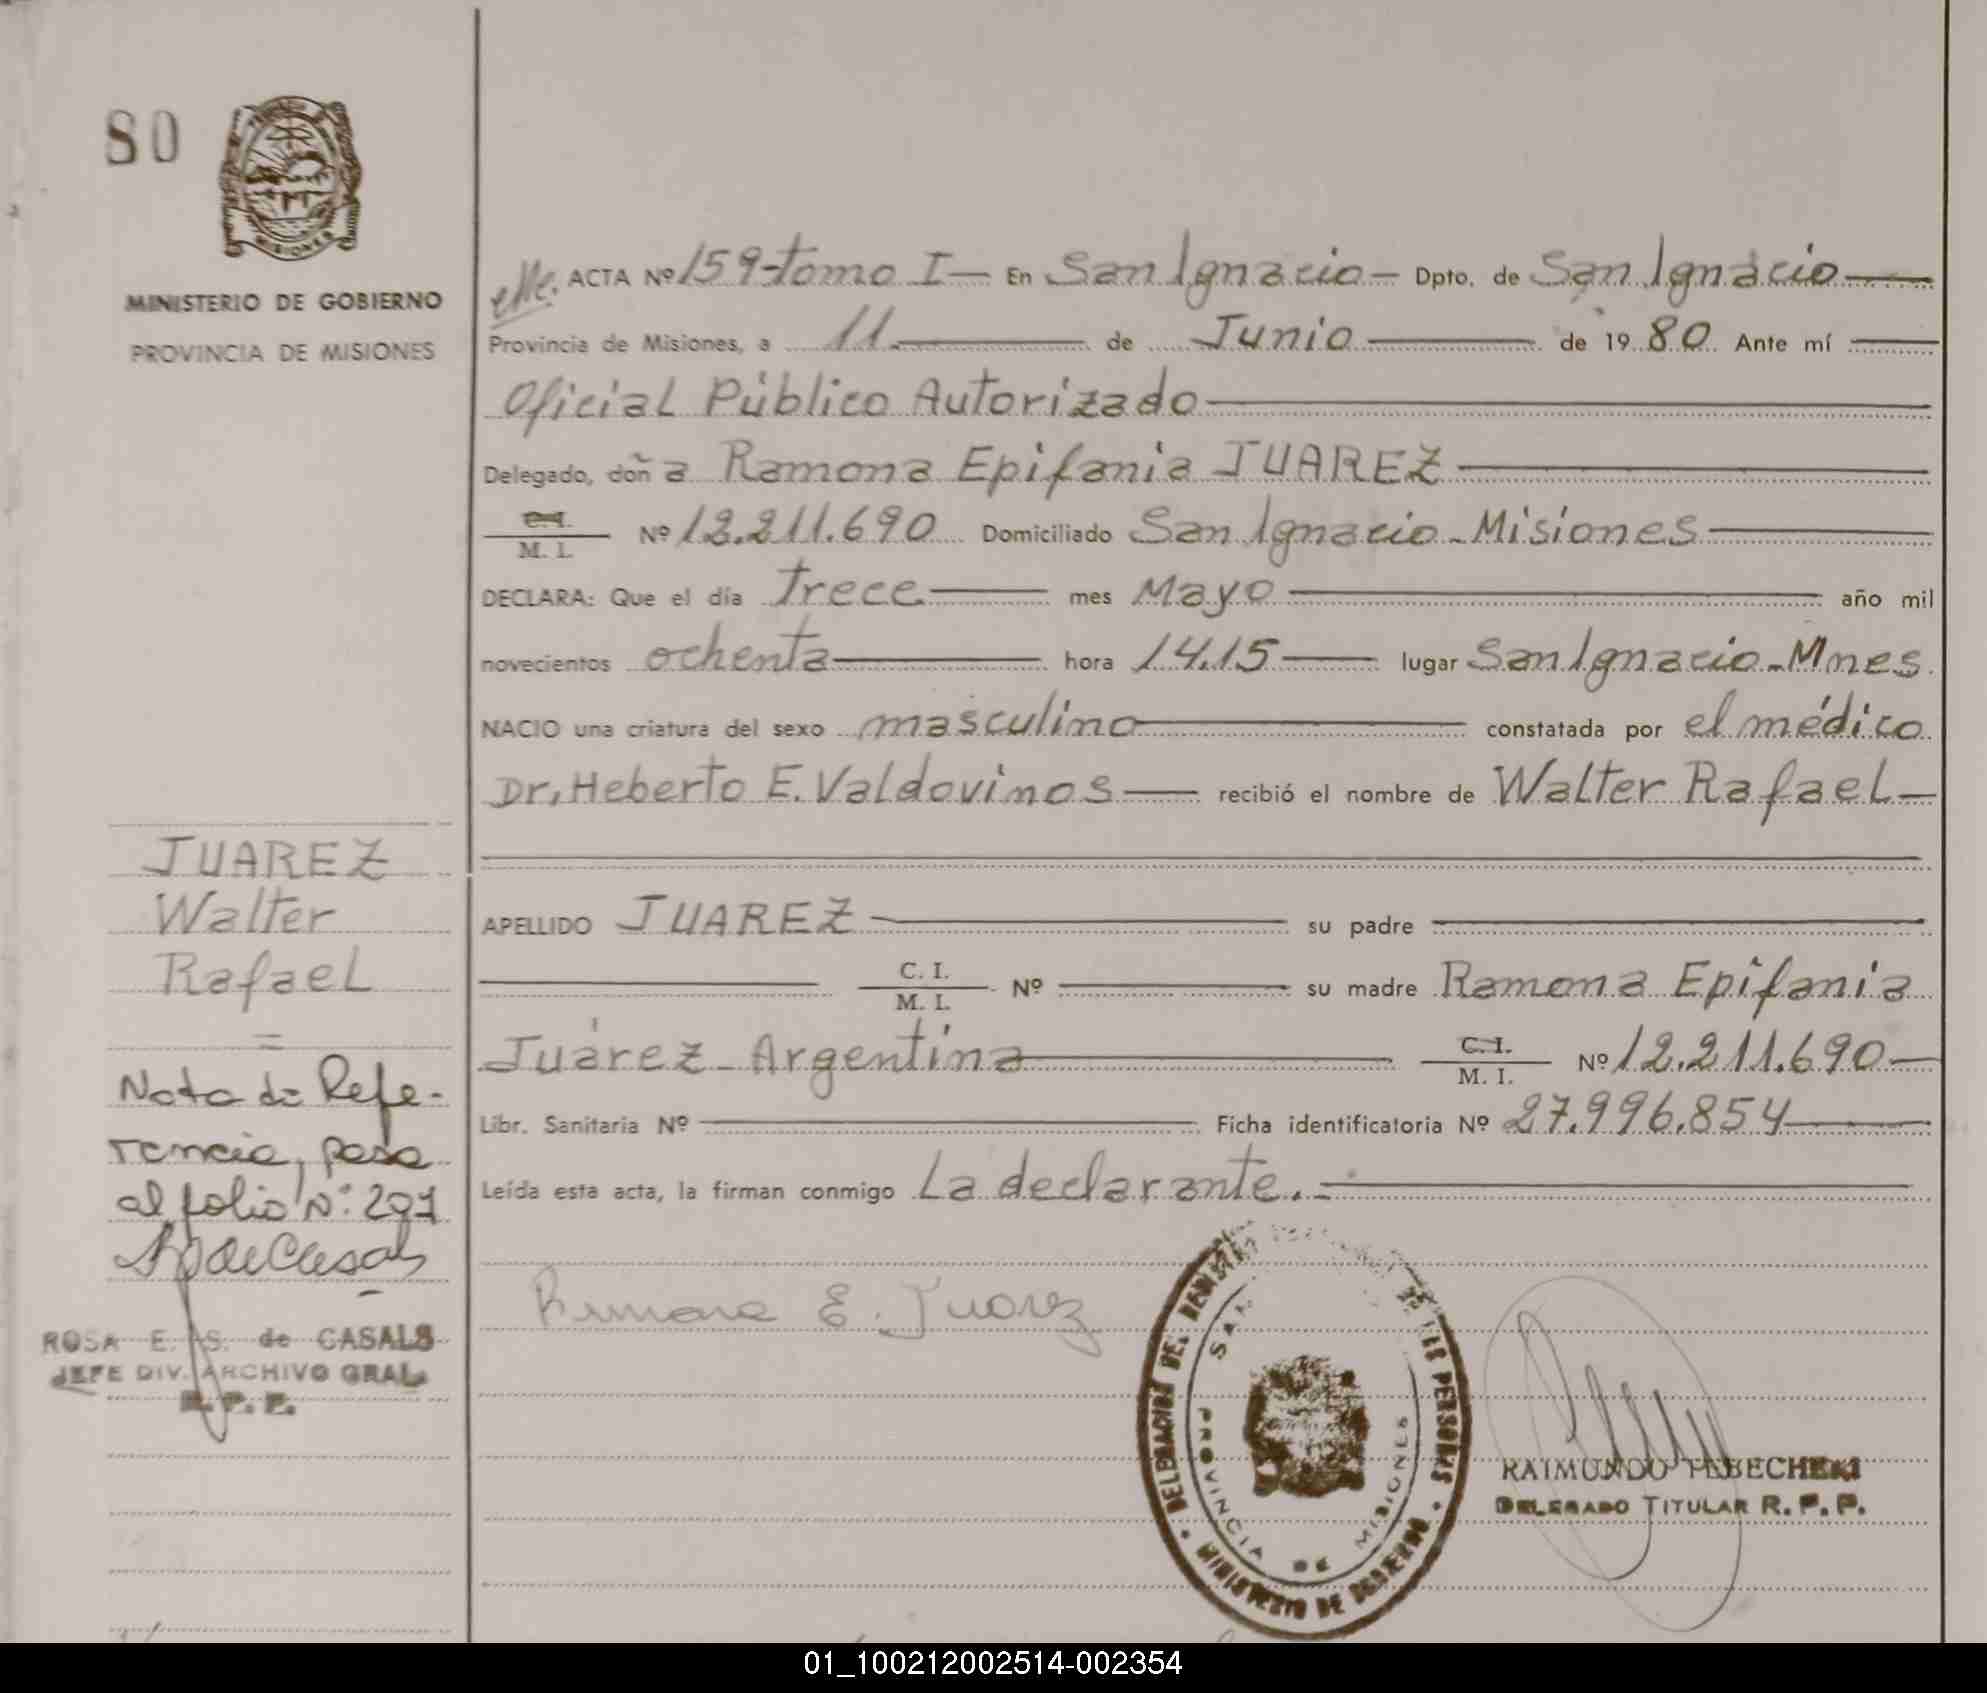 80
MISIONES
MINISTERIO DE GOBIERNO
PROVINCIA DE MISIONES
ACTA Nº 159-tomo I — En San Ignacio — Dpto. de San Ignacio
Provincia de Misiones, a 11 de Junio de 1980 Ante mí
Oficial Público Autorizado
Delegado, doña Ramona Epifania JUAREZ
C. I. / M. I. Nº 12.211.690 Domiciliado San Ignacio - Misiones
DECLARA: Que el día Trece mes Mayo año mil
novecientos ochenta hora 14.15 lugar San Ignacio - Mnes.
NACIO una criatura del sexo masculino constatada por el médico
Dr. Heberto E. Valdovinos recibió el nombre de Walter Rafael
APELLIDO JUAREZ su padre
C. I. / M. I. Nº su madre Ramona Epifania
Juárez - Argentina C. I. / M. I. Nº 12.211.690
Libr. Sanitaria Nº Ficha identificatoria Nº 27.996.854
Leída esta acta, la firman conmigo La declarante.-
Ramona E. Juarez
JUAREZ
Walter
Rafael
=
Nota de Refe-
rencia, pasa
al folio Nº: 297
ROSA E. S. de CASALS
JEFE DIV. ARCHIVO GRAL.
R. P. P.
DELEGACION DEL REGISTRO DE LAS PERSONAS
MINISTERIO DE GOBIERNO
SAN
PROVINCIA DE MISIONES
RAIMUNDO
DELEGADO TITULAR R. P. P.
01_100212002514-002354